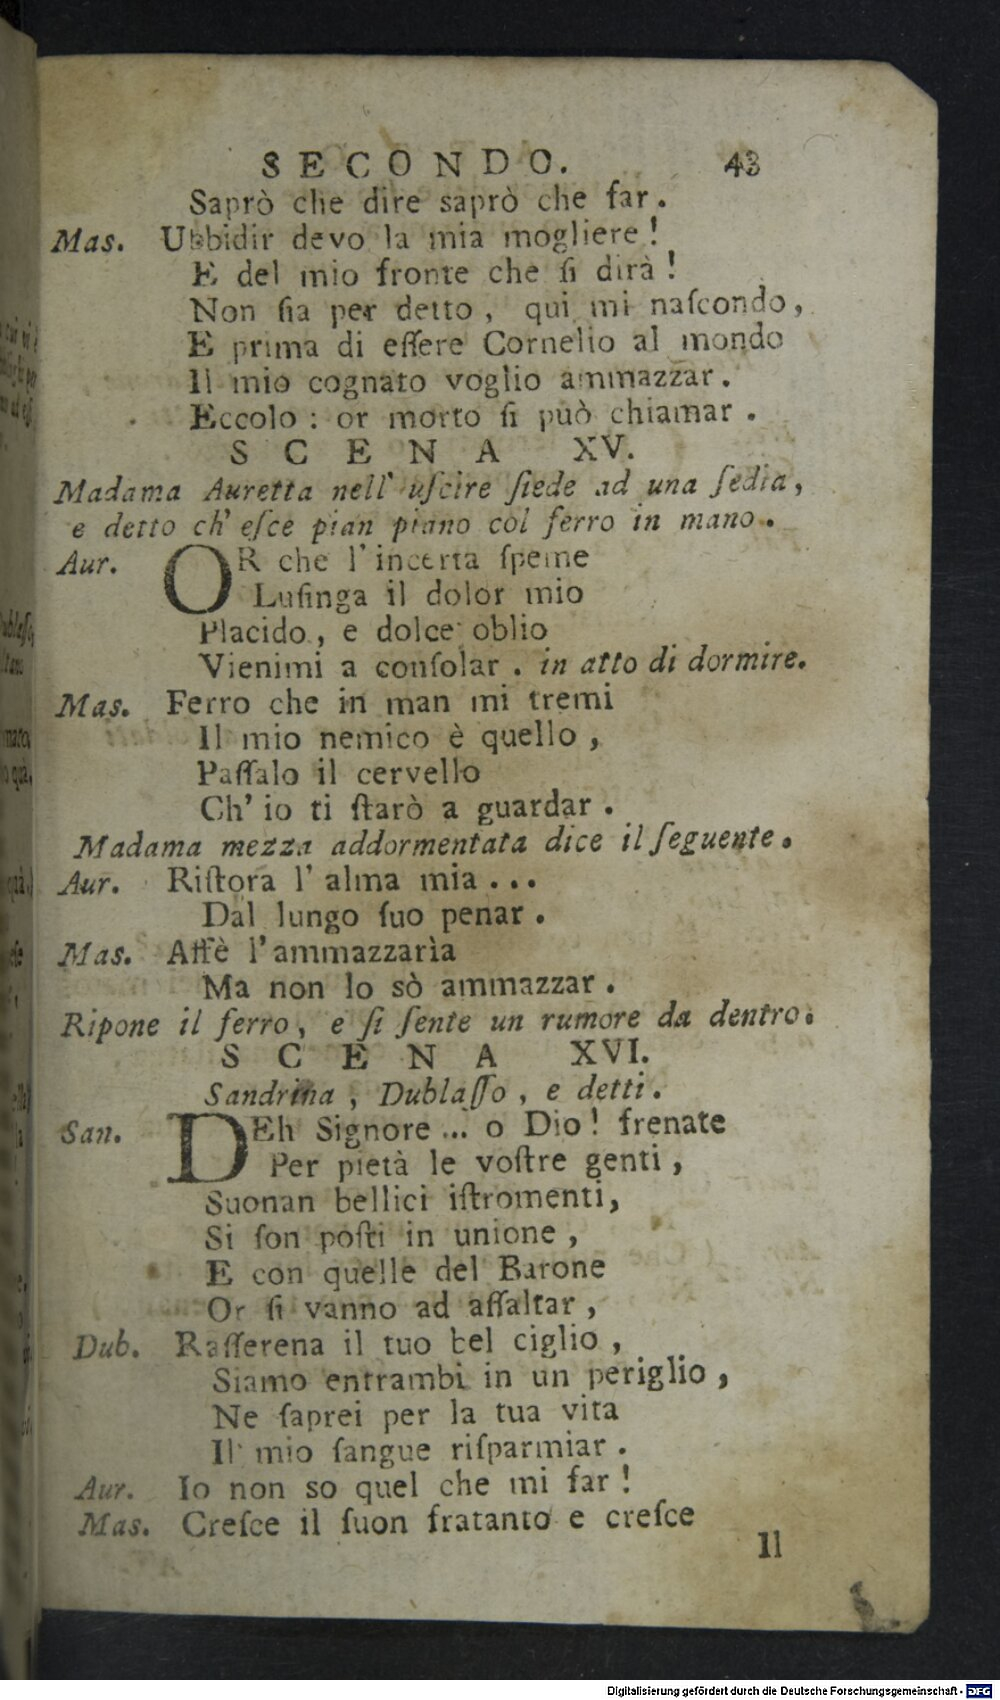 SECONDO. 43
Saprò che dire saprò che far.
Mas. Ubbidir devo la mia mogliere!
E del mio fronte che ſi dirà!
Non ſia per detto, qui mi naſcondo,
E prima di eſſere Cornelio al mondo
Il mio cognato voglio ammazzar.
Eccolo: or morto ſi può chiamar.
SCENA XV.
Madama Auretta nell' uſcire ſiede ad una ſedia,
e detto ch' eſce pian piano col ferro in mano.
Aur. OR che l'incerta ſpeme
Luſinga il dolor mio
Placido, e dolce oblio
Vienimi a conſolar. in atto di dormire.
Mas. Ferro che in man mi tremi
Il mio nemico è quello,
Paſſalo il cervello
Ch' io ti ſtarò a guardar.
Madama mezza addormentata dice il ſeguente.
Aur. Riſtora l' alma mia...
Dal lungo ſuo penar.
Mas. Affè l'ammazzarìa
Ma non lo sò ammazzar.
Ripone il ferro, e ſi ſente un rumore da dentro.
SCENA XVI.
Sandrina, Dublaſſo, e detti.
San. DEh Signore... o Dio! frenate
Per pietà le voſtre genti,
Suonan bellici iſtromenti,
Si ſon poſti in unione,
E con quelle del Barone
Or ſi vanno ad aſſaltar,
Dub. Raſſerena il tuo bel ciglio,
Siamo entrambi in un periglio,
Ne ſaprei per la tua vita
Il mio ſangue riſparmiar.
Aur. Io non so quel che mi far!
Mas. Creſce il ſuon fratanto e creſce
Il
Digitalisierung gefördert durch die Deutsche Forschungsgemeinschaft - DFG